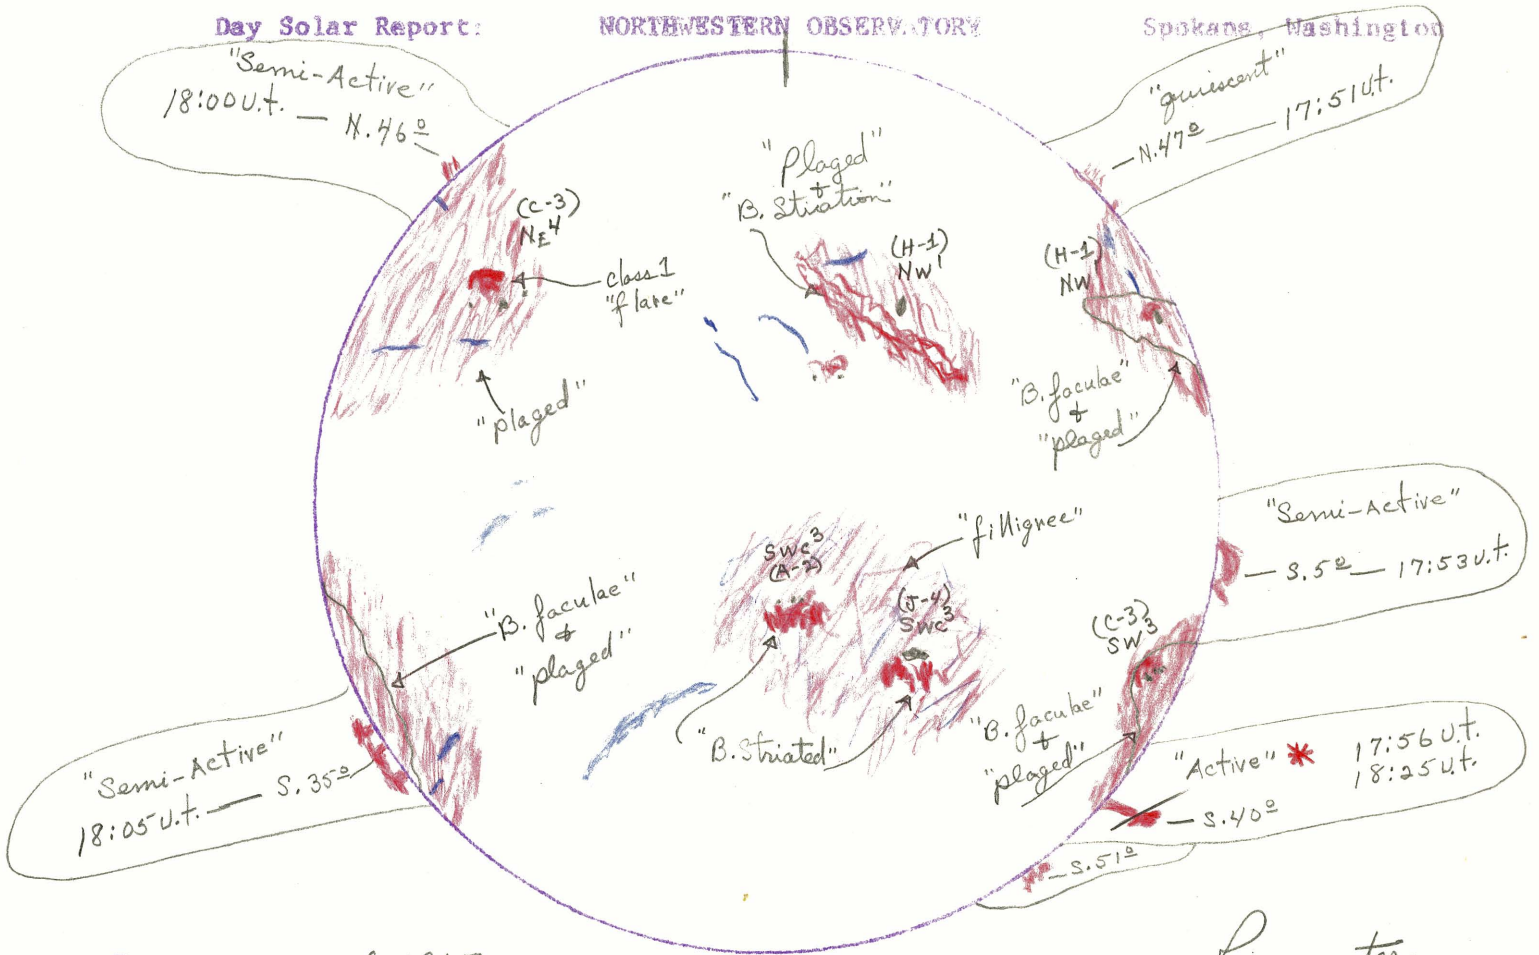 Day Solar Report: NORTHWESTERN OBSERVATORY Spokane, Washington
"Semi-Active"
18:00 U.t. — N.46º
"quiescent"
— N.47º — 17:51 U.t.
"Plaged"
&
"B. Striation"
(C-3)
NE4
class 1
"flare"
"plaged"
(H-1)
NW1
(H-1)
NW
"B. faculae"
&
"plaged"
"Semi-Active"
— S.5º — 17:53 U.t.
"fillignee"
SWc3
(A-2)
(J-4)
SWc3
"B. Striated"
"B. faculae"
&
"plaged"
(C-3)
SW3
"B. faculae"
&
"plaged"
"Semi-Active"
18:05 U.t. — S.35º
"Active" * 17:56 U.t.
18:25 U.t.
— S.40º
— S.51º